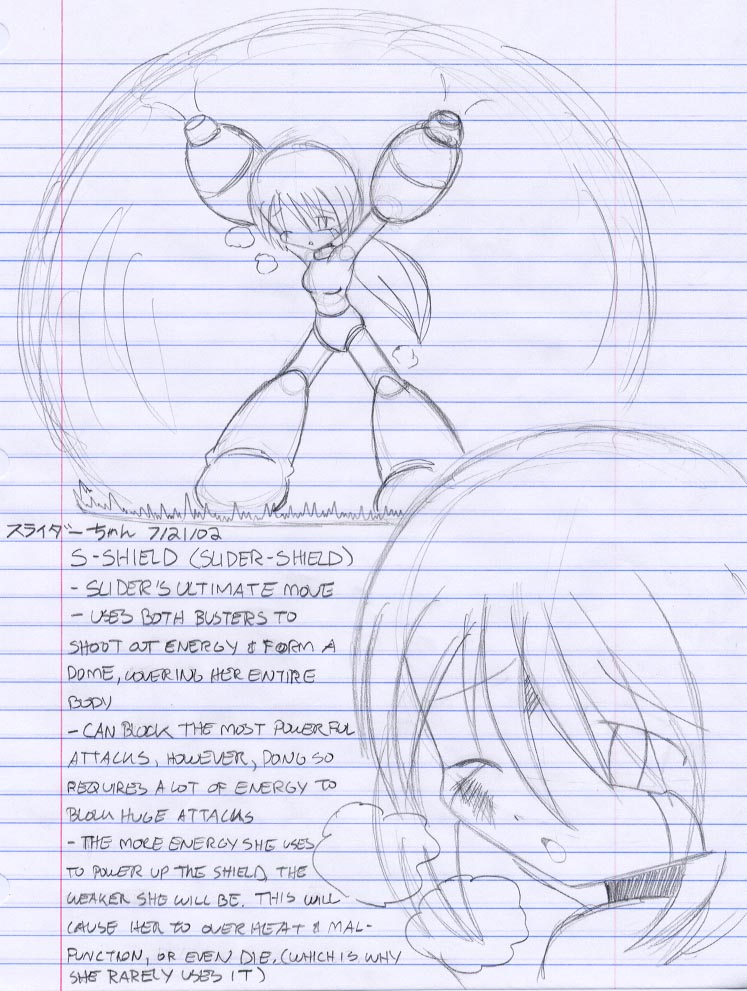 スライダーちゃん 7/21/02
S-SHIELD (SLIDER-SHIELD)
- SLIDER'S ULTIMATE MOVE
- USES BOTH BUSTERS TO
SHOOT OUT ENERGY & FORM A
DOME, COVERING HER ENTIRE
BODY
- CAN BLOCK THE MOST POWERFUL
ATTACKS, HOWEVER, DOING SO
REQUIRES A LOT OF ENERGY TO
BLOCK HUGE ATTACKS
- THE MORE ENERGY SHE USES
TO POWER UP THE SHIELD, THE
WEAKER SHE WILL BE. THIS WILL
CAUSE HER TO OVER HEAT & MAL-
FUNCTION, OR EVEN DIE. (WHICH IS WHY
SHE RARELY USES IT)